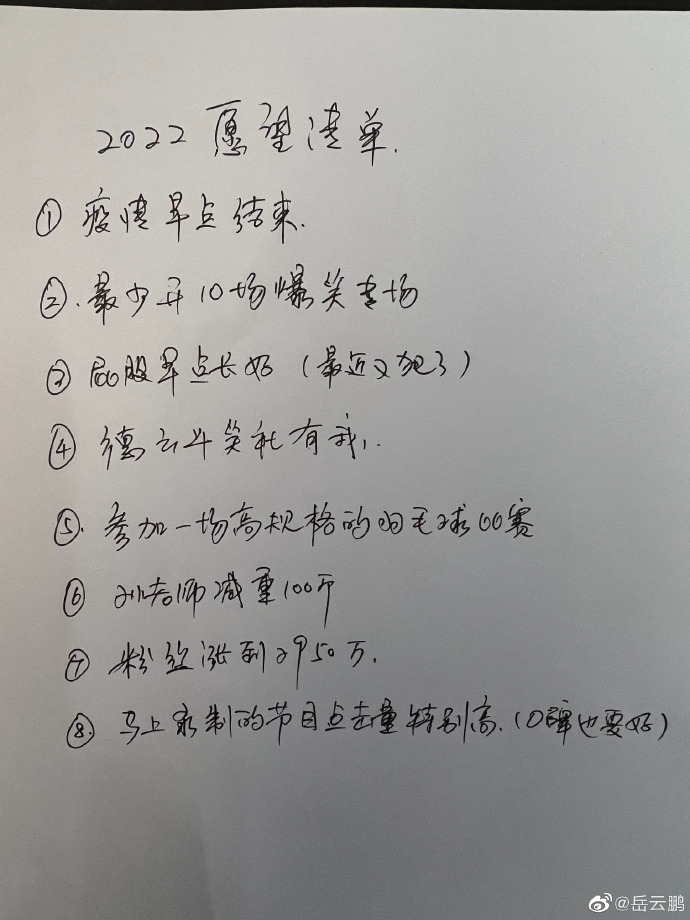 2022愿望清单.
① 疫情早点结束.
②. 最少开10场爆笑专场
③ 屁股早点长好（最近又犯了）
④ 德云斗笑社有我,.
⑤. 参加一场高规格的羽毛球比赛
⑥ 孙老师减重100斤
⑦ 粉丝涨到2950万.
⑧. 马上录制的节目点击量特别高.（口碑也要好）
@岳云鹏